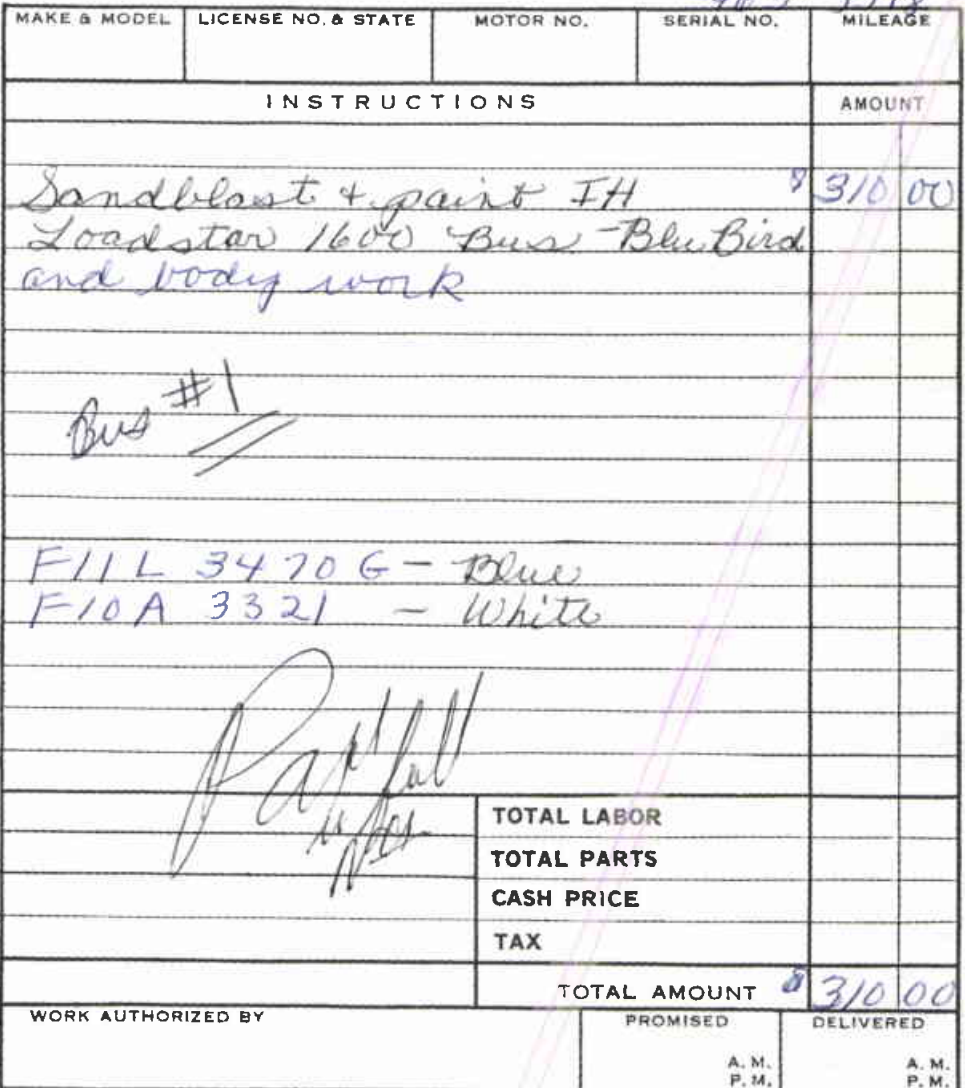 MAKE & MODEL LICENSE NO. & STATE MOTOR NO. SERIAL NO. MILEAGE
INSTRUCTIONS AMOUNT
Sandblast + paint IH $ 310 00
Loadstar 1600 Bus - Blu Bird
and body work
Bus #1
F11L 3470 G - Blue
F10A 3321 - White
Paid full
TOTAL LABOR
TOTAL PARTS
CASH PRICE
TAX
TOTAL AMOUNT $ 310 00
WORK AUTHORIZED BY PROMISED DELIVERED
A. M. A. M.
P. M. P. M.